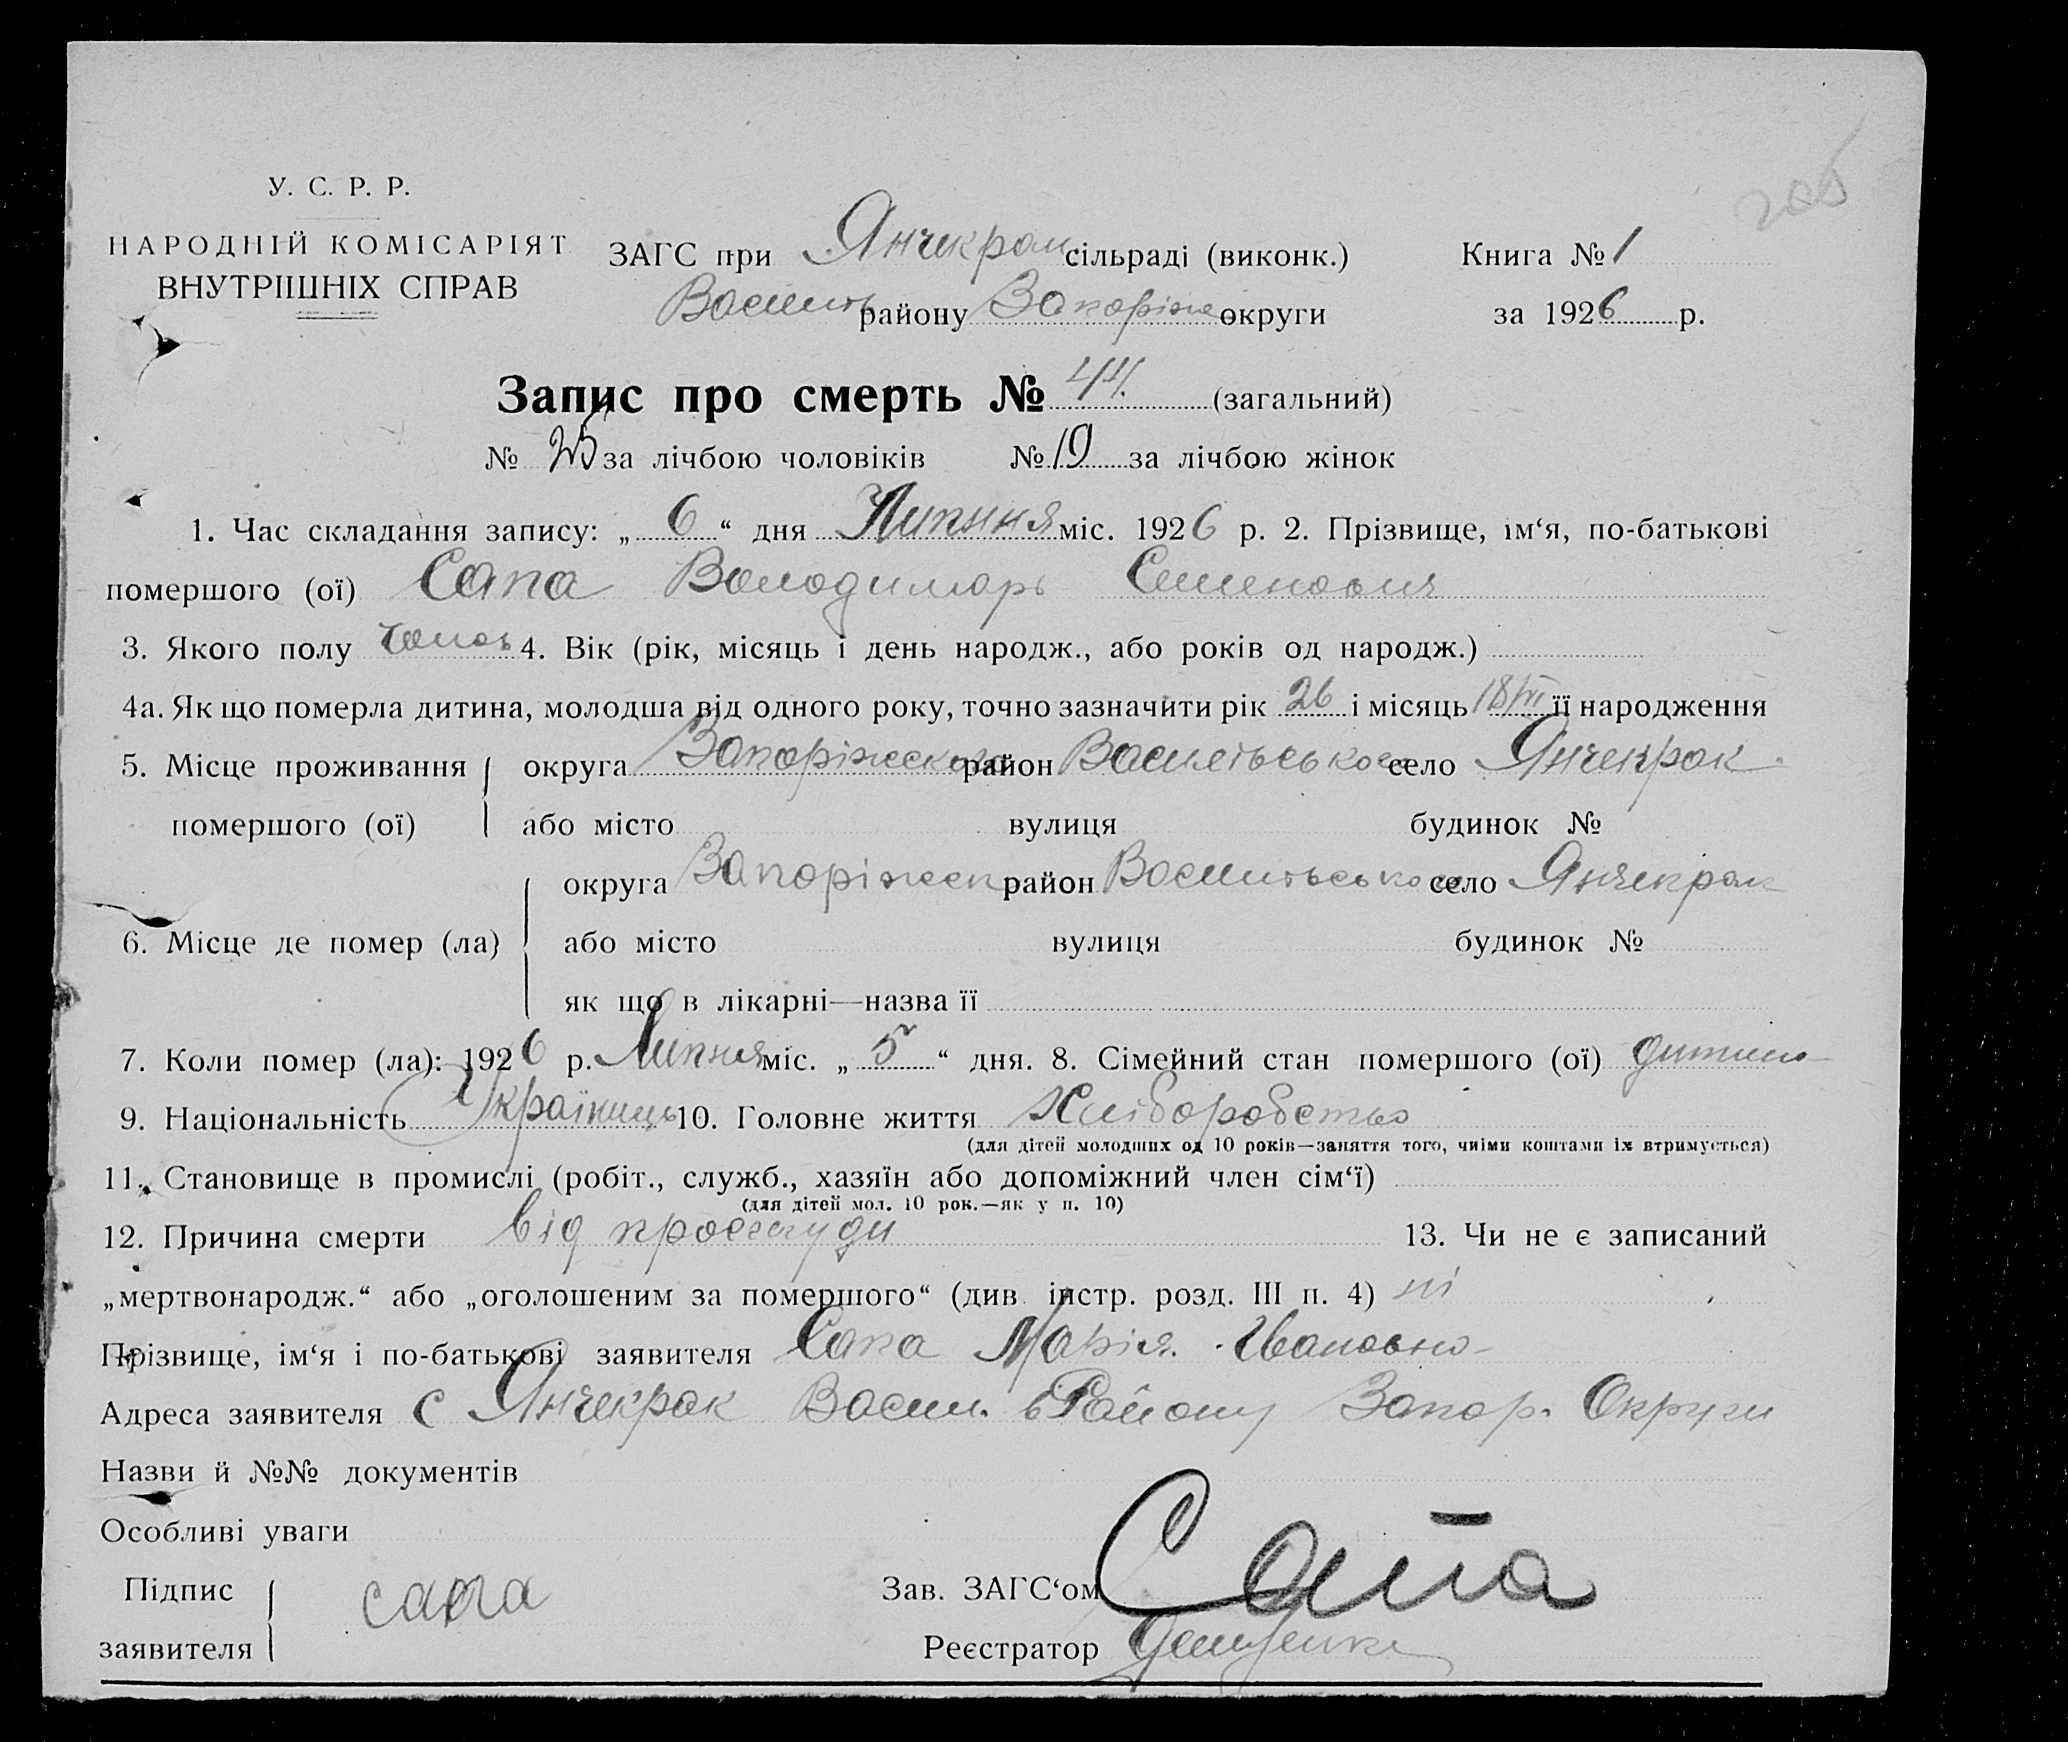 205
У. С. Р. Р.
НАРОДНІЙ КОМІСАРІЯТ
ВНУТРІШНІХ СПРАВ
ЗАГС при Янчекрак сільраді (виконк.) Книга № 1
Василь району Запоріж округи за 1926 р.
Запис про смерть № 44. (загальний)
№ 25 за лічбою чоловіків № 19 за лічбою жінок
1. Час складання запису: „ 6 “ дня Липння міс. 1926 р. 2. Прізвище, ім‘я, по-батькові
помершого (ої) Сапа Володимарь Семенович
3. Якого полу чолов 4. Вік (рік, місяць і день народж., або років од народж.)
4а. Як що померла дитина, молодша від одного року, точно зазначити рік 26 і місяць 18/VI її народження
5. Місце проживання округа Запоріжська район Василівського село Янчекрак
помершого (ої) або місто вулиця будинок №
округа Запоріжськ район Василівського село Янчекрак
6. Місце де помер (ла) або місто вулиця будинок №
як що в лікарні—назва її
7. Коли помер (ла): 1926 р. Липня міс. „ 5 “ дня. 8. Сімейний стан помершого (ої) дитина
9. Національність Українець 10. Головне життя Хліборобство
(для дітей молодших од 10 років—заняття того, чиїми коштами їх втримується)
11. Становище в промислі (робіт., служб., хазяїн або допоміжний член сім‘ї)
(для дітей мол. 10 рок.—як у п. 10)
12. Причина смерти від простуди 13. Чи не є записаний
„мертвонародж.“ або „оголошеним за помершого“ (див. інстр. розд. III п. 4) ні
Прізвище, ім‘я і по-батькові заявителя Сапа Марія Івановна
Адреса заявителя с Янчекрак Васил. Району Запор. Округи
Назви й №№ документів
Особливі уваги
Підпис сапа Зав. ЗАГС‘ом Сапа
заявителя Реєстратор